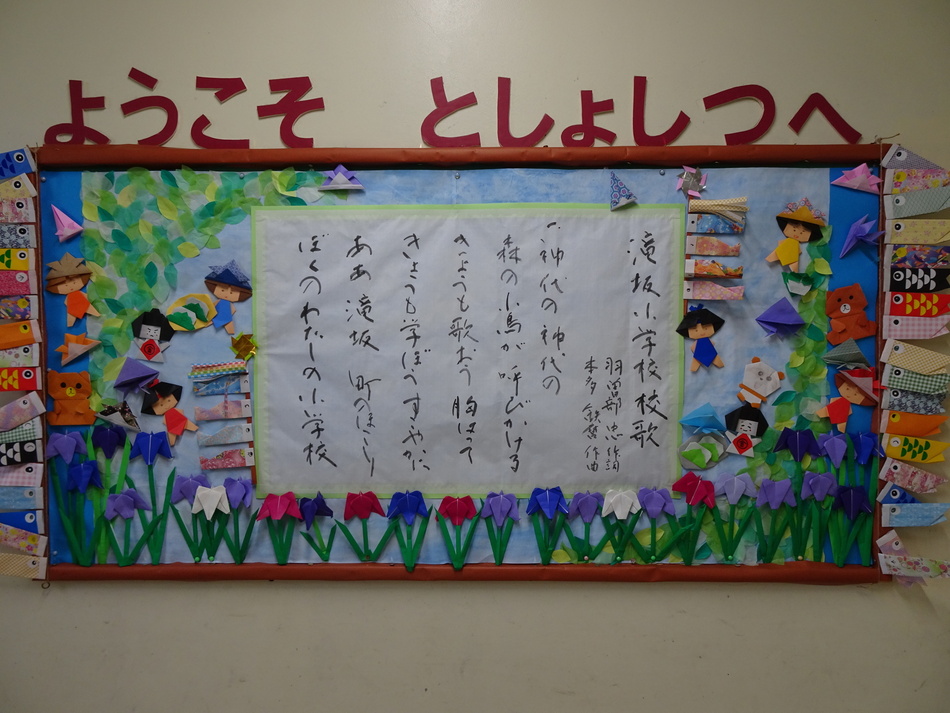 ようこそ としょしつへ
滝坂小学校校歌
羽曽部 忠 作詞
本多 鉄麿 作曲
一、神代の神代の
森の小鳥が呼びかける
きょうも歌おう 胸はって
きょうも学ぼう すこやかに
ああ 滝坂 町のほこり
ぼくのわたしの小学校